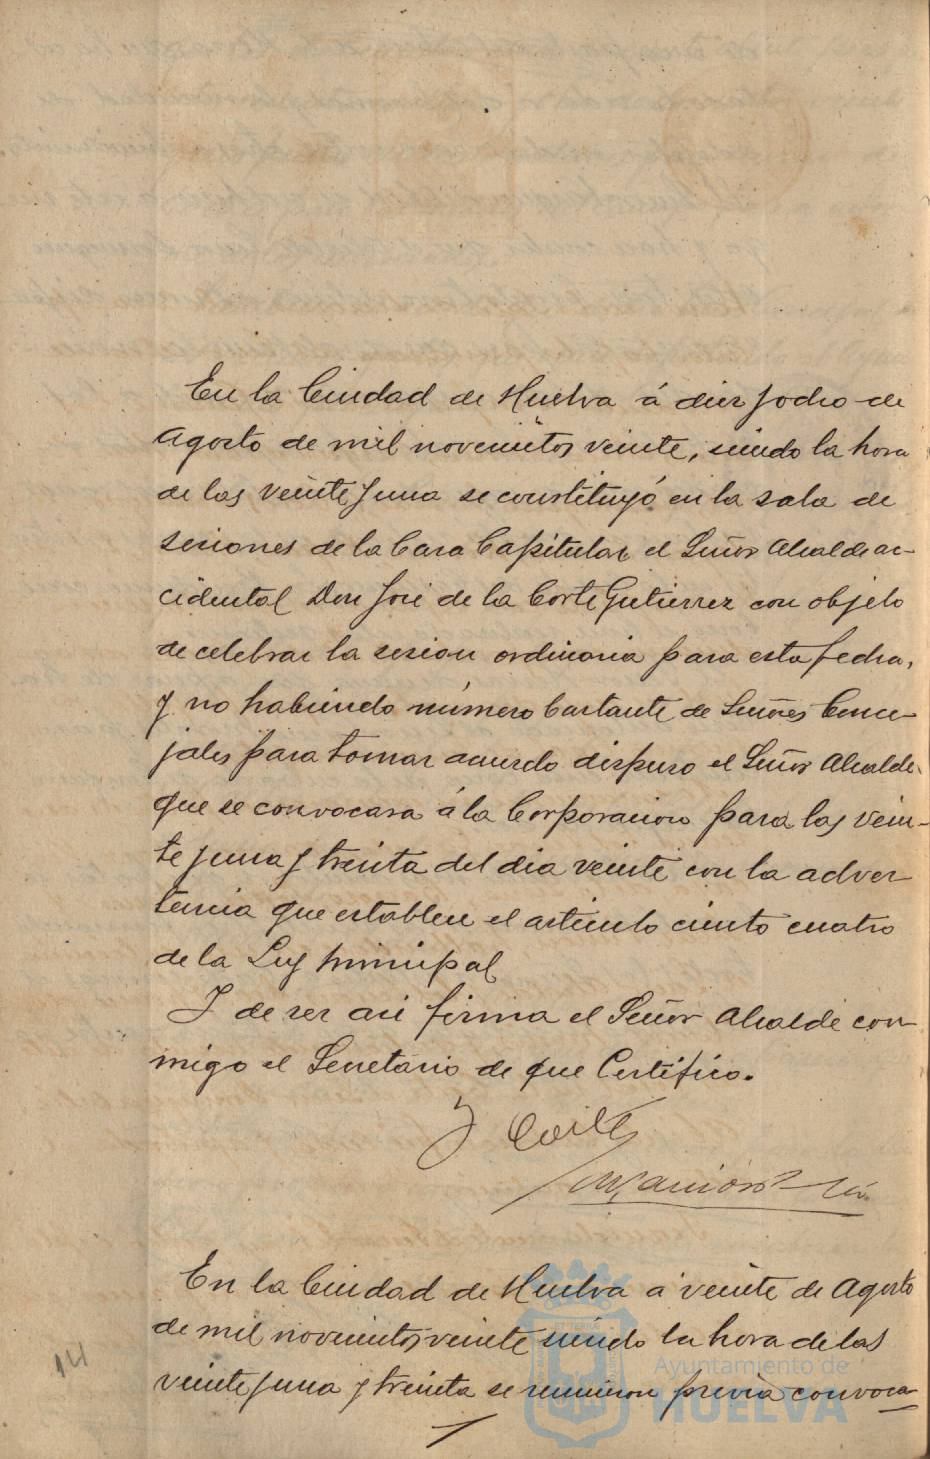 En la Ciudad de Huelva á diez y ocho de
Agosto de mil novecientos veinte, siendo la hora
de las veinte y una se constituyó en la sala de
sesiones de la Casa Capitular el Señor Alcalde ac-
cidental Don José de la Corte Gutierrez con objeto
de celebrar la sesion ordinaria para esta fecha,
y no habiendo número bastante de Señores Conce-
jales para tomar acuerdo dispuso el Señor Alcalde,
que se convocara á la Corporacion para las vein-
te y una y treinta del dia veinte con la adver
tencia que establece el articulo ciento cuatro
de la Ley Municipal
Y de ser asi firma el Señor Alcalde con-
migo el Secretario de que Certifico.
J Corte
En la Ciudad de Huelva á veinte de Agosto
de mil novecientos veinte siendo la hora de las
veinte y una y treinta se reunieron previa convoca-
14
Ayuntamiento de
HUELVA